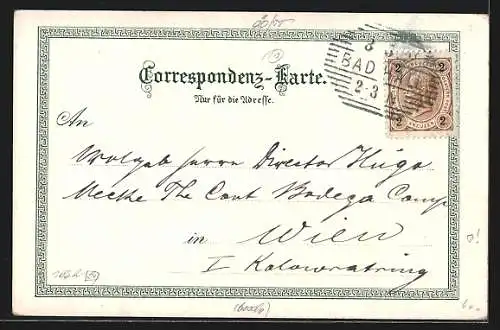 Correspondenz-Karte.
Nur für die Adresse.
BAD
2-3
2 2
2 2
An
Wolgeb Herrn Director Hugo
The Cont Bodega Comp
in Wien
I Kolowratring